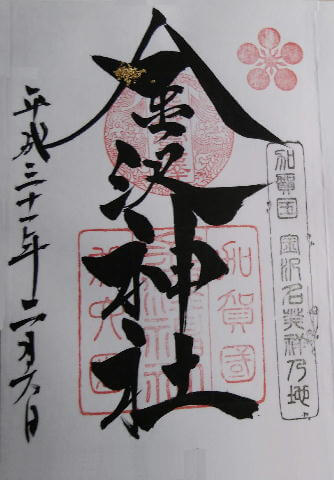 加賀国 金沢名発祥乃地
金沢神社
加賀國
平成三十一年二月六日